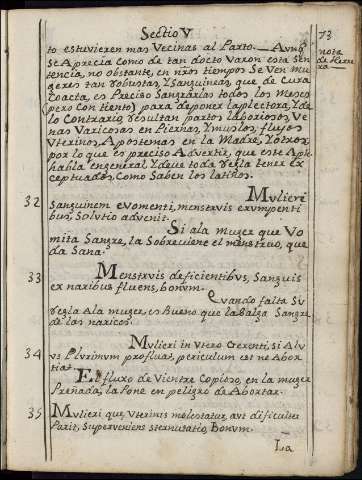 Sectio V
73
to estuvieren mas Vecinas al Parto. Aunq̃
se Aprecia como de tan docto Varon esta Sen
tencia, no obstante, en nr̃os tiempos se Ven mu
geres tan robustas, y Sanguineas, que de Cura
Coacta, es Preciso Sangrarlas todos los Meses
(pero con tiento) para deponer la plectora, y de
lo Contrario, resultan partos laboriosos, Ve
nas Varicosas en Piernas, y muslos, flujos
Uterinos, Apostemas en la Madre, y otros;
por lo que es preciso Advertir, que este Aph.
habla en general, y deve toda Regla tener ex
ceptuados, Como Saben los latinos.
nota
de Herre
ra
32 Mulieri
Sanguinem evomenti, menstruis erumpenti
bus, Solutio advenit.
Si a la muger que Vo
mita Sangre, la Sobreviene el menstruo, que
da Sana.
33 Menstruis deficientibus, Sanguis
ex naribus fluens, bonum.
Quando falta Su
regla A la muger, es Bueno que la Salga Sangre
de las narices.
34 Mulieri in Utero Gerenti, si Alv
us Plurimum profluat, periculum est ne Abor
tiat.
El fluxo de Vientre Copioso, en la muger
Preñada, la Pone en peligro de Abortar.
35 Mulieri que, Uterinis molestatur, aut dificulter
Parit, Superveniens sternutatio, Bonum.
La